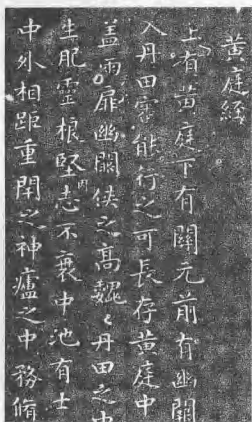 黄庭經
上有黄庭下有關元前有幽闕
入丹田審能行之可長存黄庭中
盖兩扉幽闕俠之高魏〻丹田之中
生肥靈根堅志不衰中池有士
内
中外相距重閉之神廬之中務脩